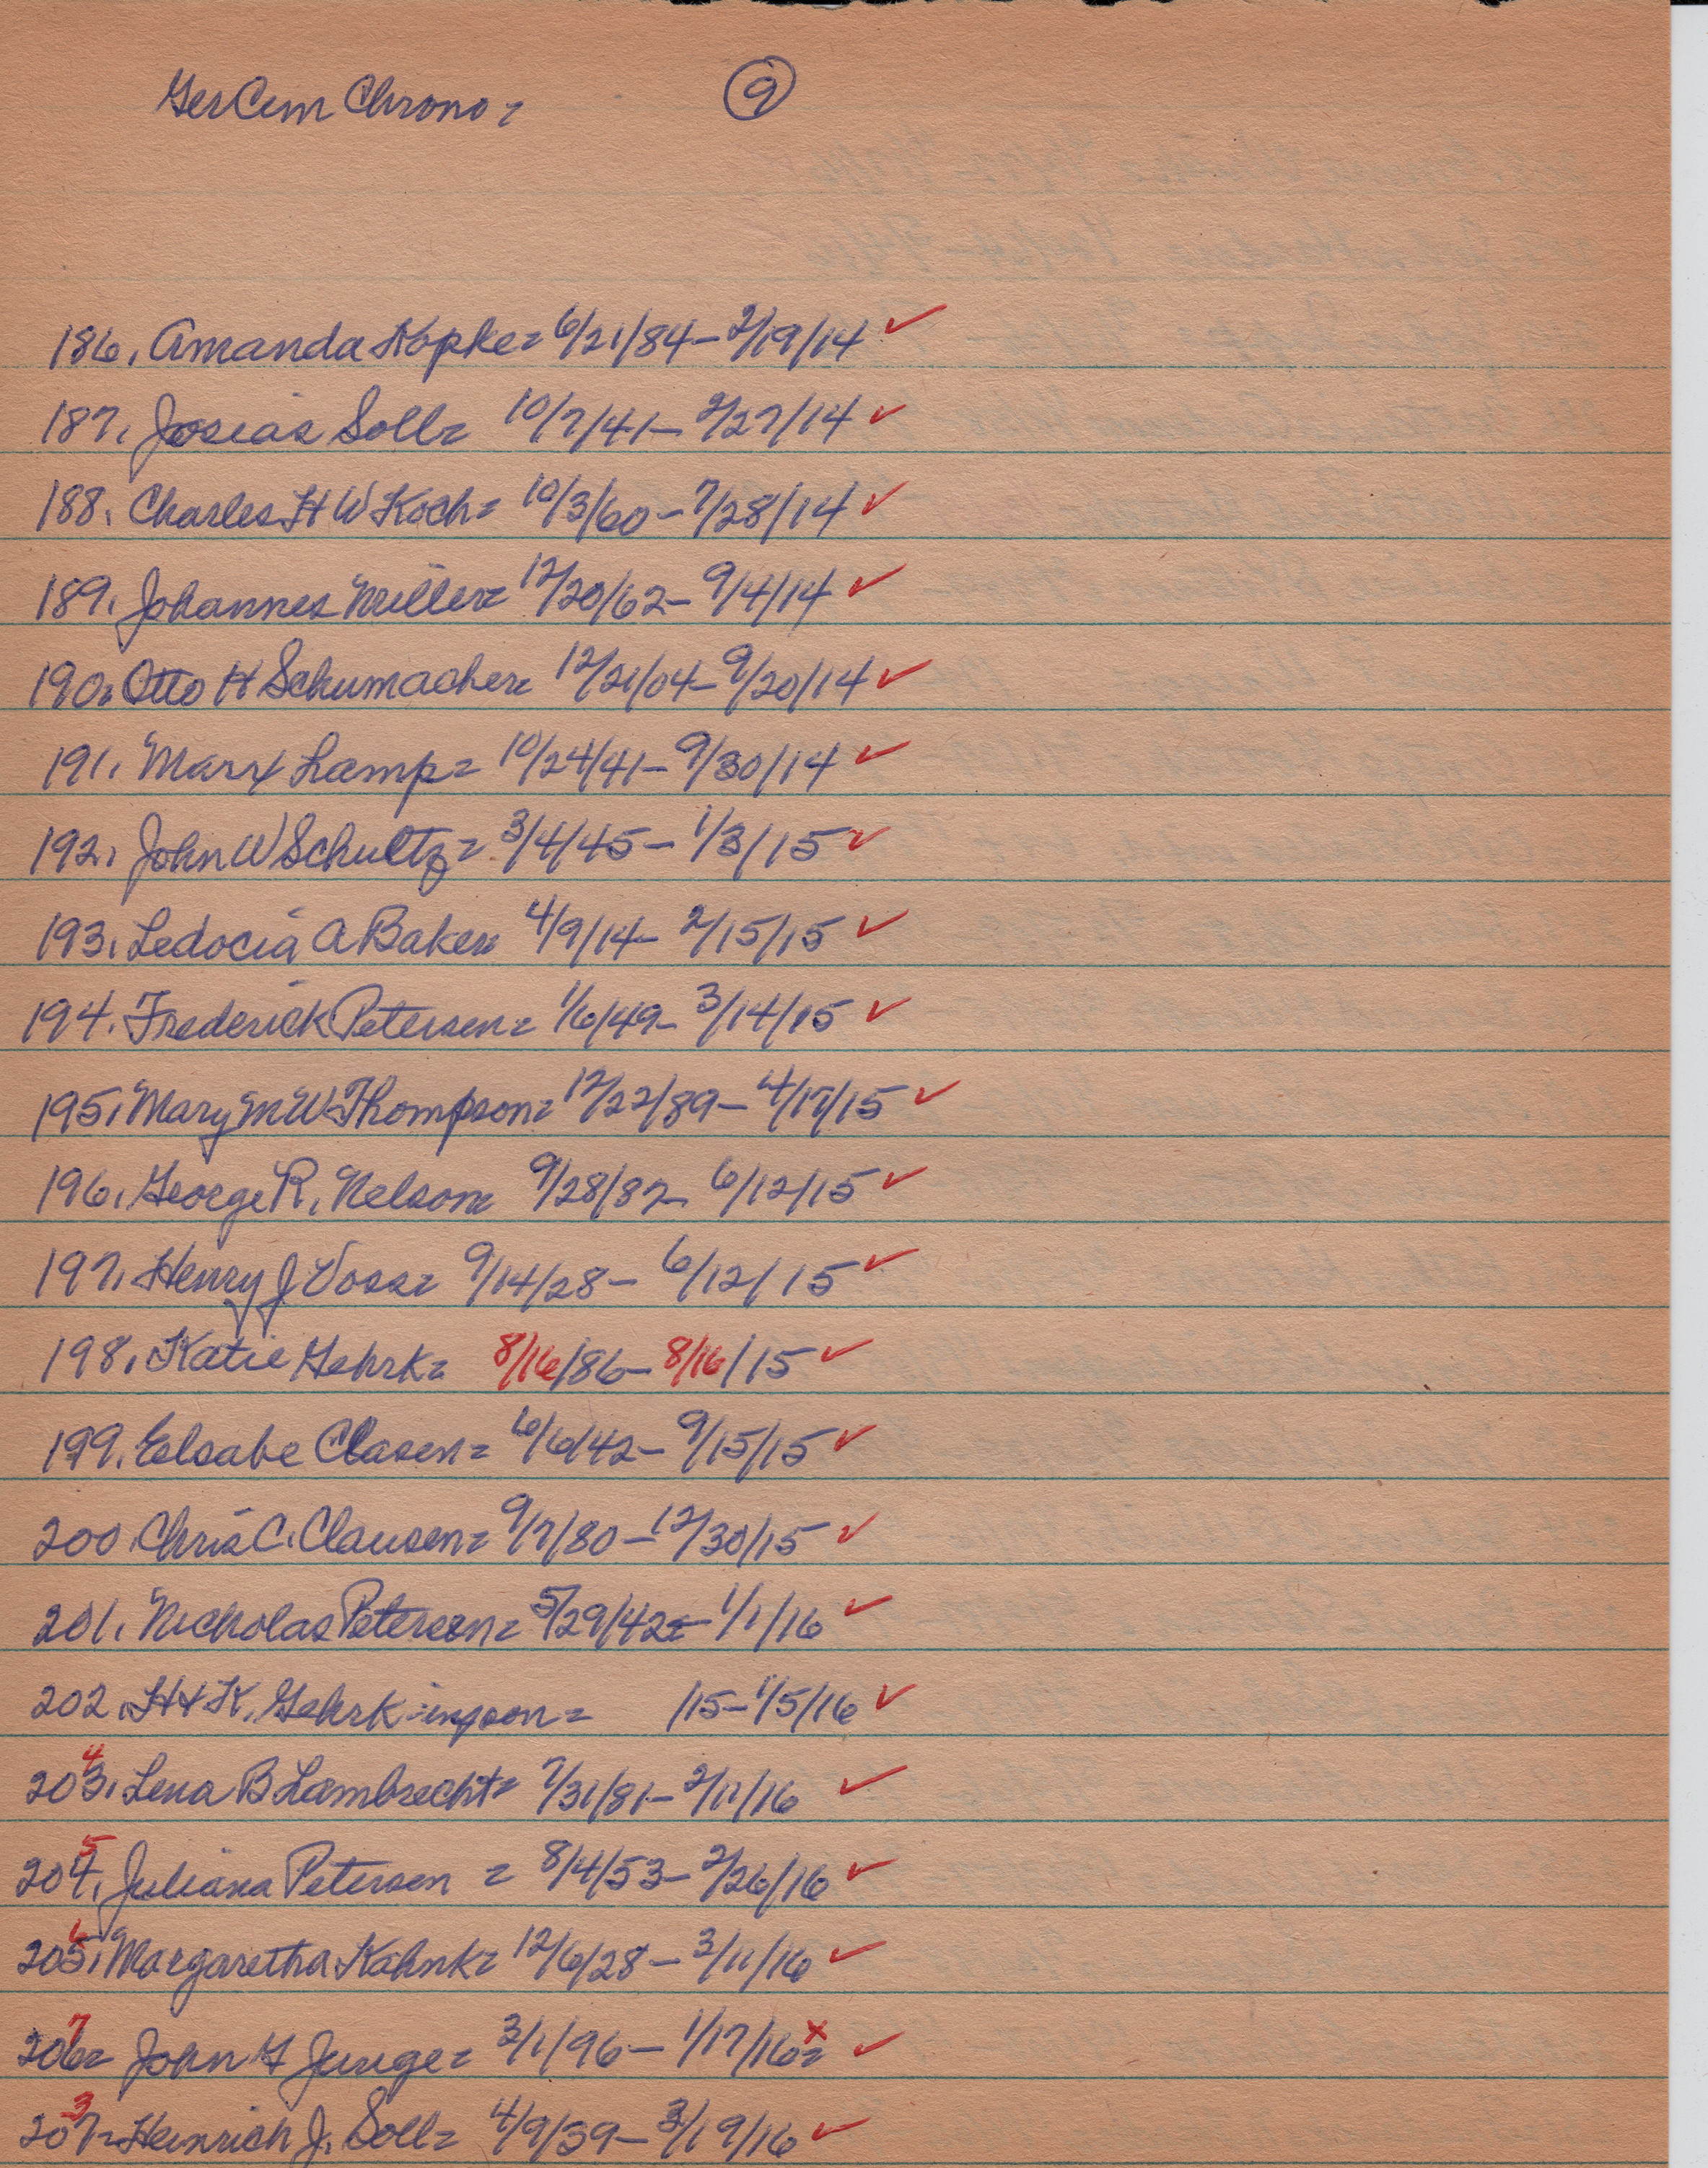 Ger Cem Chrono = 9
186. Amanda Kopke = 6/21/84 - 2/19/14 ✓
187. Josias Soll = 10/7/41 - 2/27/14 ✓
188. Charles H W Koch = 10/3/60 - 7/28/14 ✓
189. Johannes Miller = 12/20/62 - 9/4/14 ✓
190. Otto H Schumacher = 12/21/04 - 9/20/14 ✓
191. Marx Lamp = 10/24/41 - 9/30/14 ✓
192. John W Schultz = 3/4/45 - 1/3/15 ✓
193. Ledocia A Baker = 4/9/14 - 2/15/15 ✓
194. Frederick Petersen = 1/6/49 - 3/14/15 ✓
195. Mary M W Thompson = 12/22/89 - 4/17/15 ✓
196. George R. Nelson = 9/28/87 - 6/12/15 ✓
197. Henry J Voss = 9/14/28 - 6/12/15 ✓
198. Katie Gehrk = 8/16/86 - 8/16/15 ✓
199. Eelsabe Clasen = 6/6/42 - 9/15/15 ✓
200. Chris C. Clausen = 9/7/80 - 12/30/15 ✓
201. Nicholas Petersen = 5/29/42 - 1/1/16 ✓
202. H + K. Gehrk - inf son = /15 - 1/5/16 ✓
203. 4 Lena B Lambrecht = 7/31/81 - 2/11/16 ✓
204. 5 Juliana Petersen = 8/4/53 - 2/26/16 ✓
205. 6 Margaretha Kahnk = 12/6/28 - 3/11/16 ✓
206 = 7 John Junge = 3/1/96 - 1/17/16 x = ✓
207 - 3 Heinrich J. Soll = 4/9/39 - 3/19/16 ✓